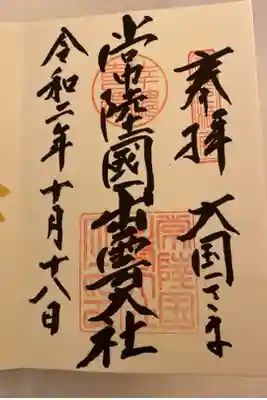 奉拝 大国さま
常陸國出雲大社
令和二年十月十八日